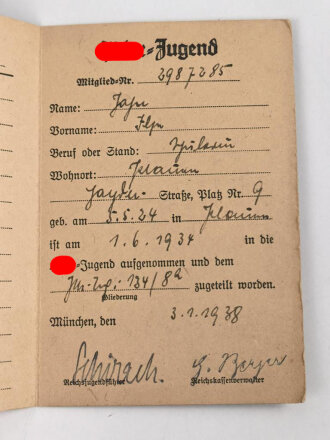 -Jugend
Mitglied-Nr. 2987285
Name: Jahn
Vorname: Ilse
Beruf oder Stand: Schülerin
Wohnort: Plauen
Haydn- Straße, Platz Nr. 9
geb. am 5.5.24 in Plauen
ist am 1.6.1934 in die
-Jugend aufgenommen und dem
134/8a zugeteilt worden.
Gliederung
München, den 3.1.1938
Schirach. G. Berger
Reichsjugendführer Reichskassenverwalter